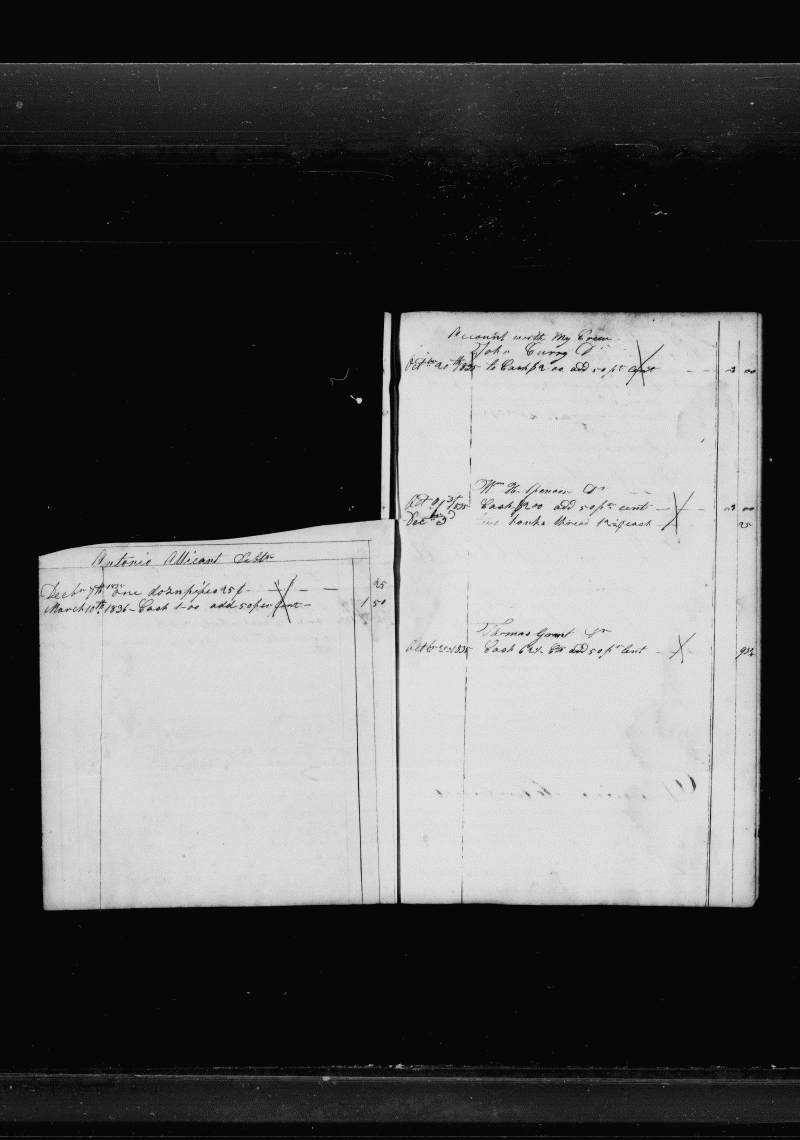 Antonio Allicant Debtr
Decbr 7th 1835 one dozn pipes 25 ¢ 25
March 10th 1836 - Cash 1-00 add 50 per Cent - 1 50
Account with My Crew
John Curry Dr
Octbr 20th 1835 to Cash $2 00 add 50 pr Cent 3 00
Wm H. Spencer Dr
Oct 21st 1835 Cash $2 00 add 50 pr cent 3 00
Decbr 3d hanks thread 25
Thomas Grant Dr
Octbr 1835 Cash add 50 pr Cent